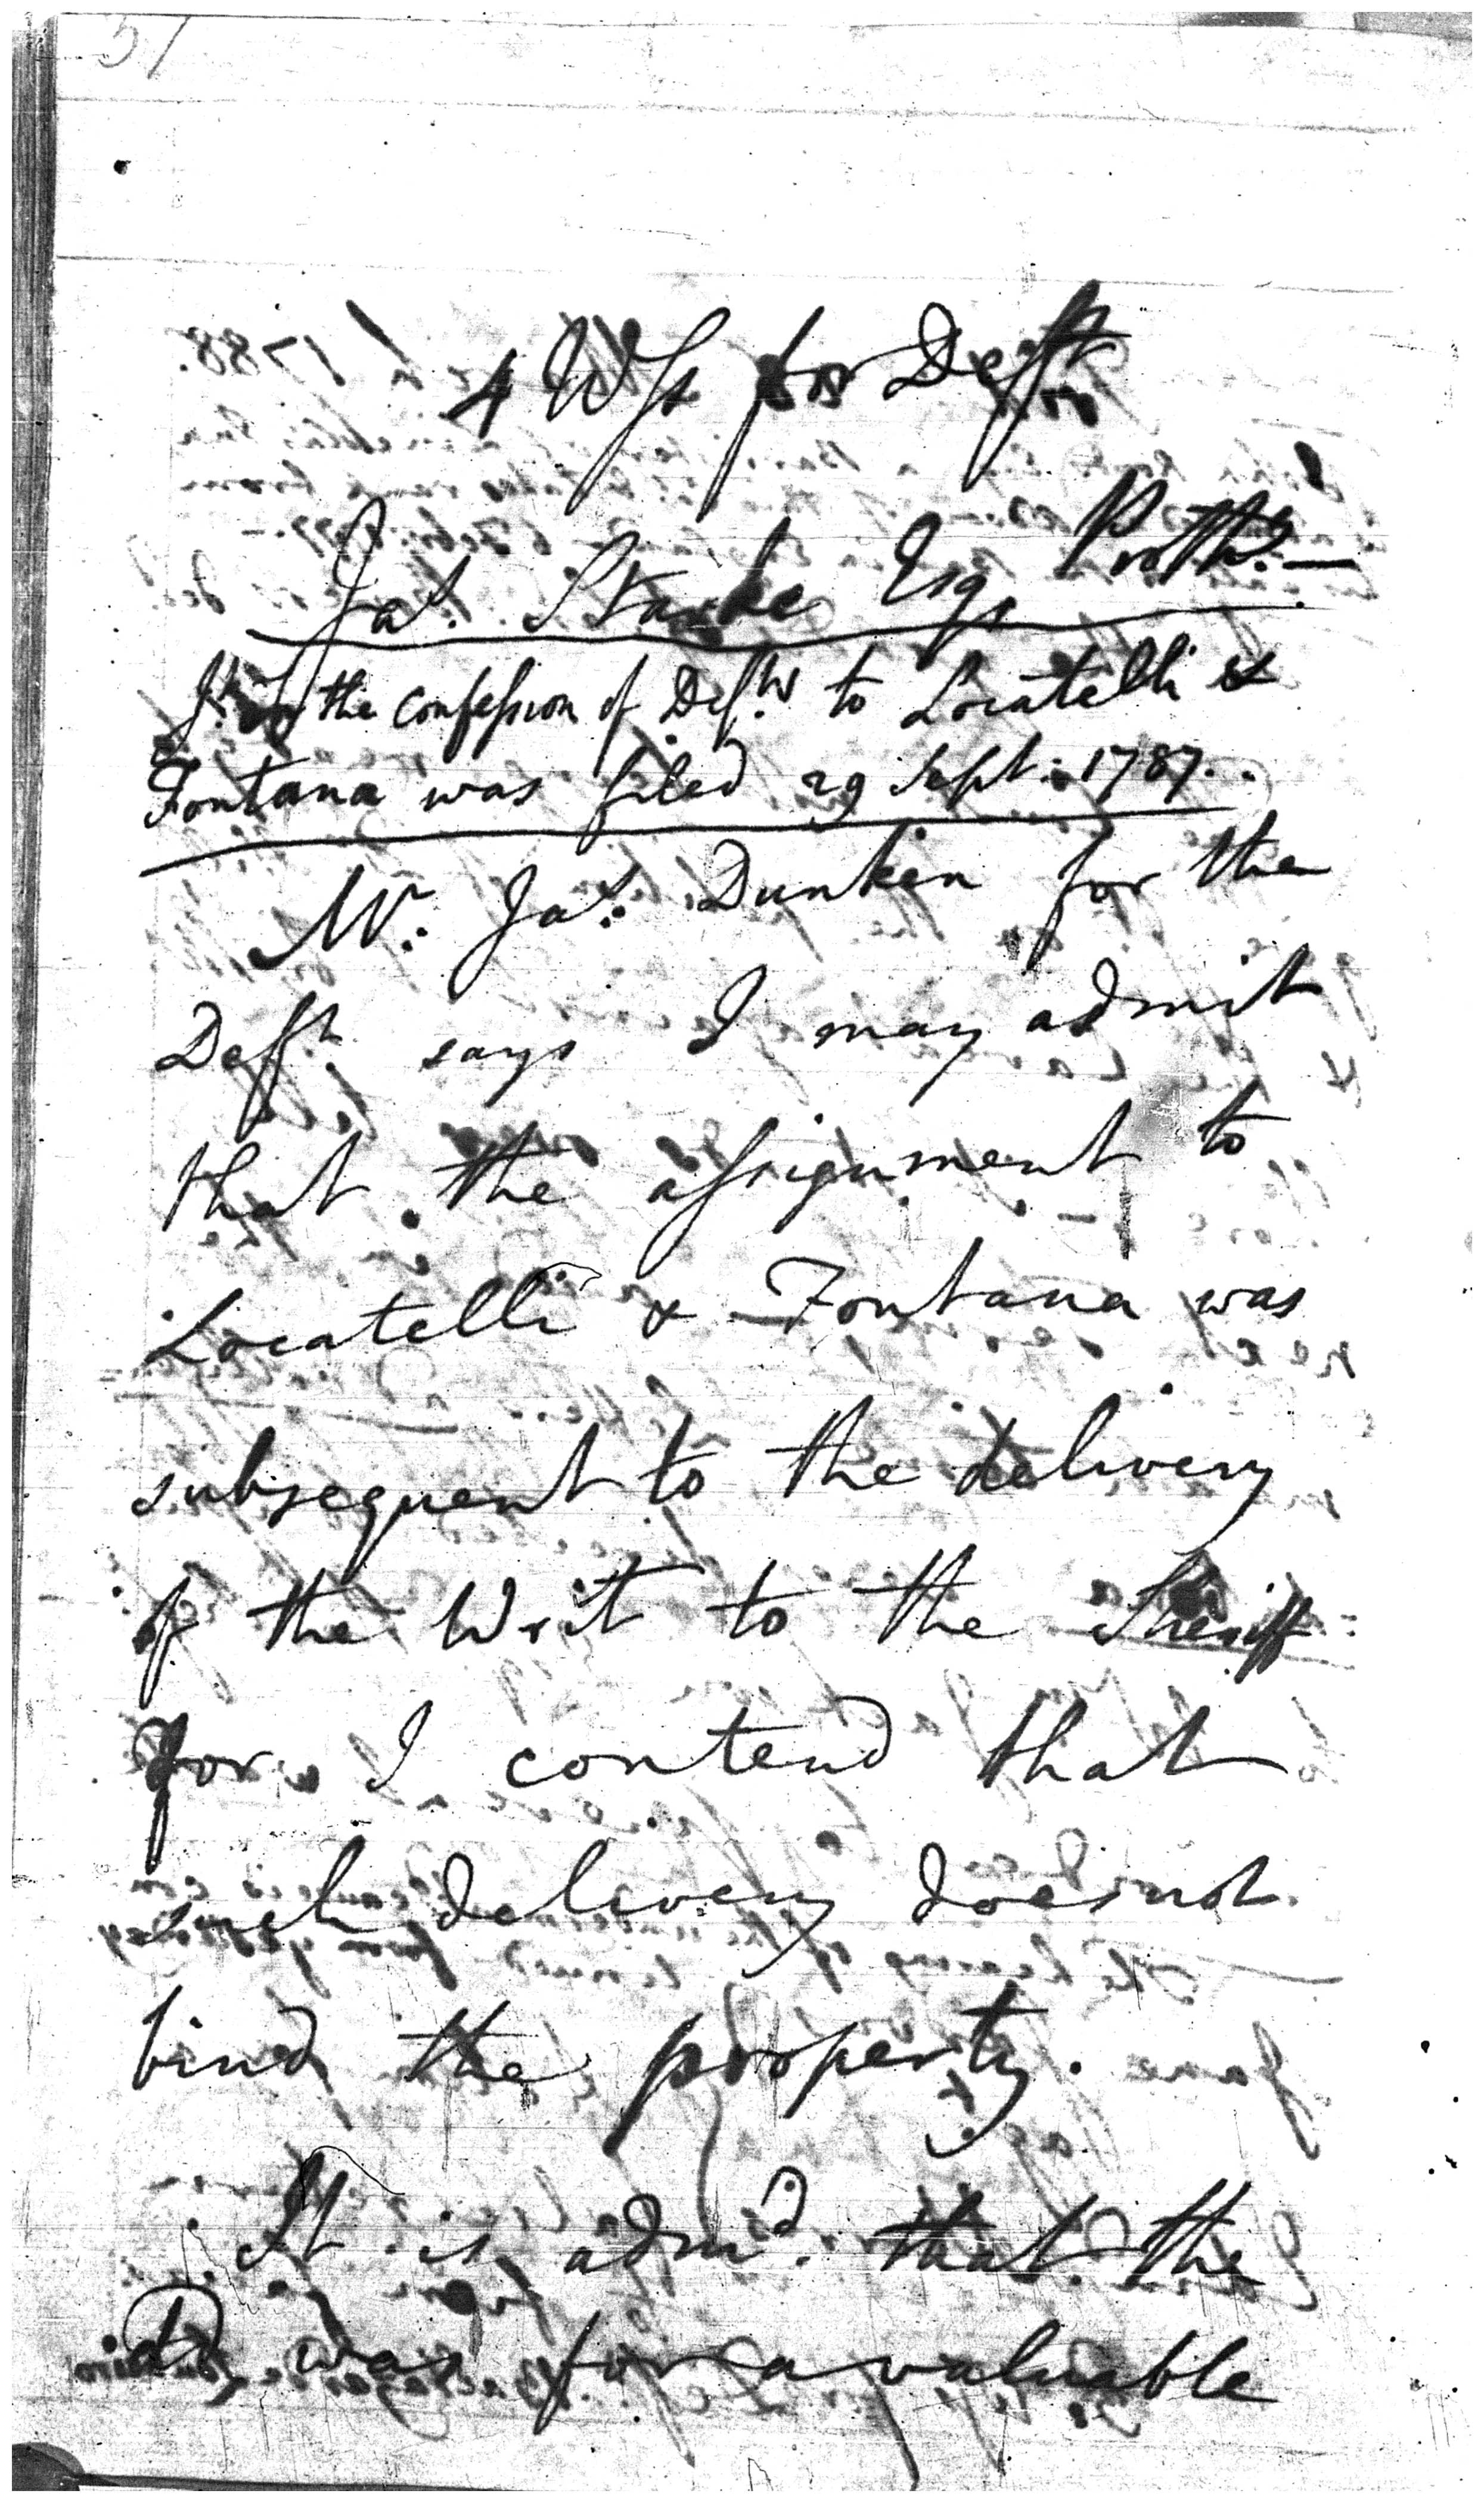 51
4 Wss for Defts
Jas. Starke Esq. Proth.
the confession of Defts to Locatelli &
Fontana was filed 29 Sept: 1787.
Mr. Jas. Dunkin for the
Defts says I may admit
that the assignment to
Locatelli & Fontana was
subsequent to the delivery
of the Writ to the Sheriff
for I contend that
such delivery does not
bind the property.
It is admd. that the
was for a valuable